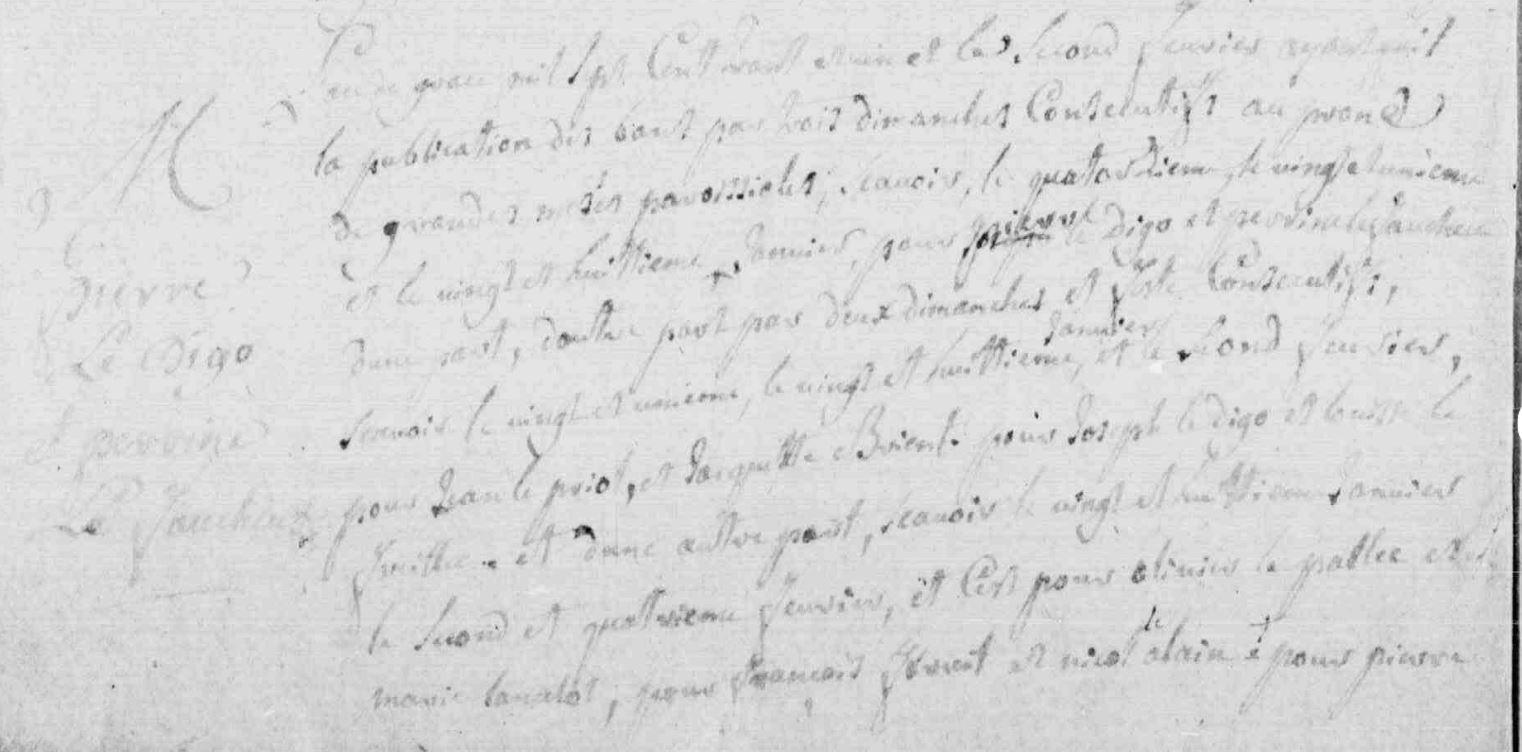 M
pierre
Le Digo
et perrine
Le Faucheux
de grace mil sept Cent vent et un et le second feuvier ayant fait
la publication des bans par trois dimanches Consecutifs au prone
de grandes messes paroissiales, scauoir, le quatorzieme, le vingt et unieme
et le vingt et huittieme Januier, pour pierre le Digo et perrine le faucheux
dune part, dautre part par deux dimanches et feste Consecutifs,
scauoir le vingt et unieme, le vingt et huittieme Januier, et le second feuvier,
pour Jean le priol, et Jacquette Brient pour Joseph le Digo et louisse le
et dune autre part, scauoir le vingt et huittieme Januier
le second et quattrieme feuvier, et Cest pour oliuier le pallec et
marie , pour francois et nicol le alain pour pierre